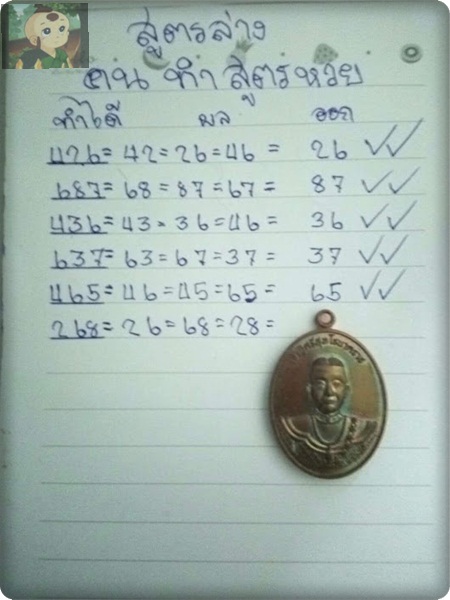 สูตรล่าง
คน ทำ สูตรหวย
ทำได้ ผล ออก
426= 42=26=46 = 26 ✓✓
687= 68=87=67= 87 ✓✓
436=43=36=46= 36 ✓✓
637=63=67=37= 37 ✓✓
465=46=45=65= 65 ✓✓
268=26=68=28=